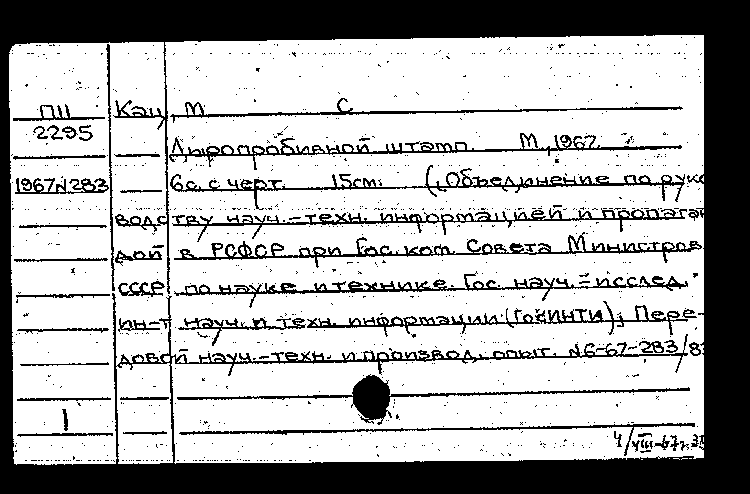 ПII Кац, М С
2295 Дыропробивной штамп. М., 1967.
1967 N283 6с. с черт. 15см. („Объединение по руко
водству науч.-техн. информацией и пропаган
дой в РСФСР при Гос. ком. Совета Министров
СССР по науке и технике. Гос. науч.=исслед.
ин-т науч. и техн. информации (ГОСИНТИ); Пере-
довой науч.-техн. и производ. опыт. N6-67-283/8
1
4/VIII-67г.